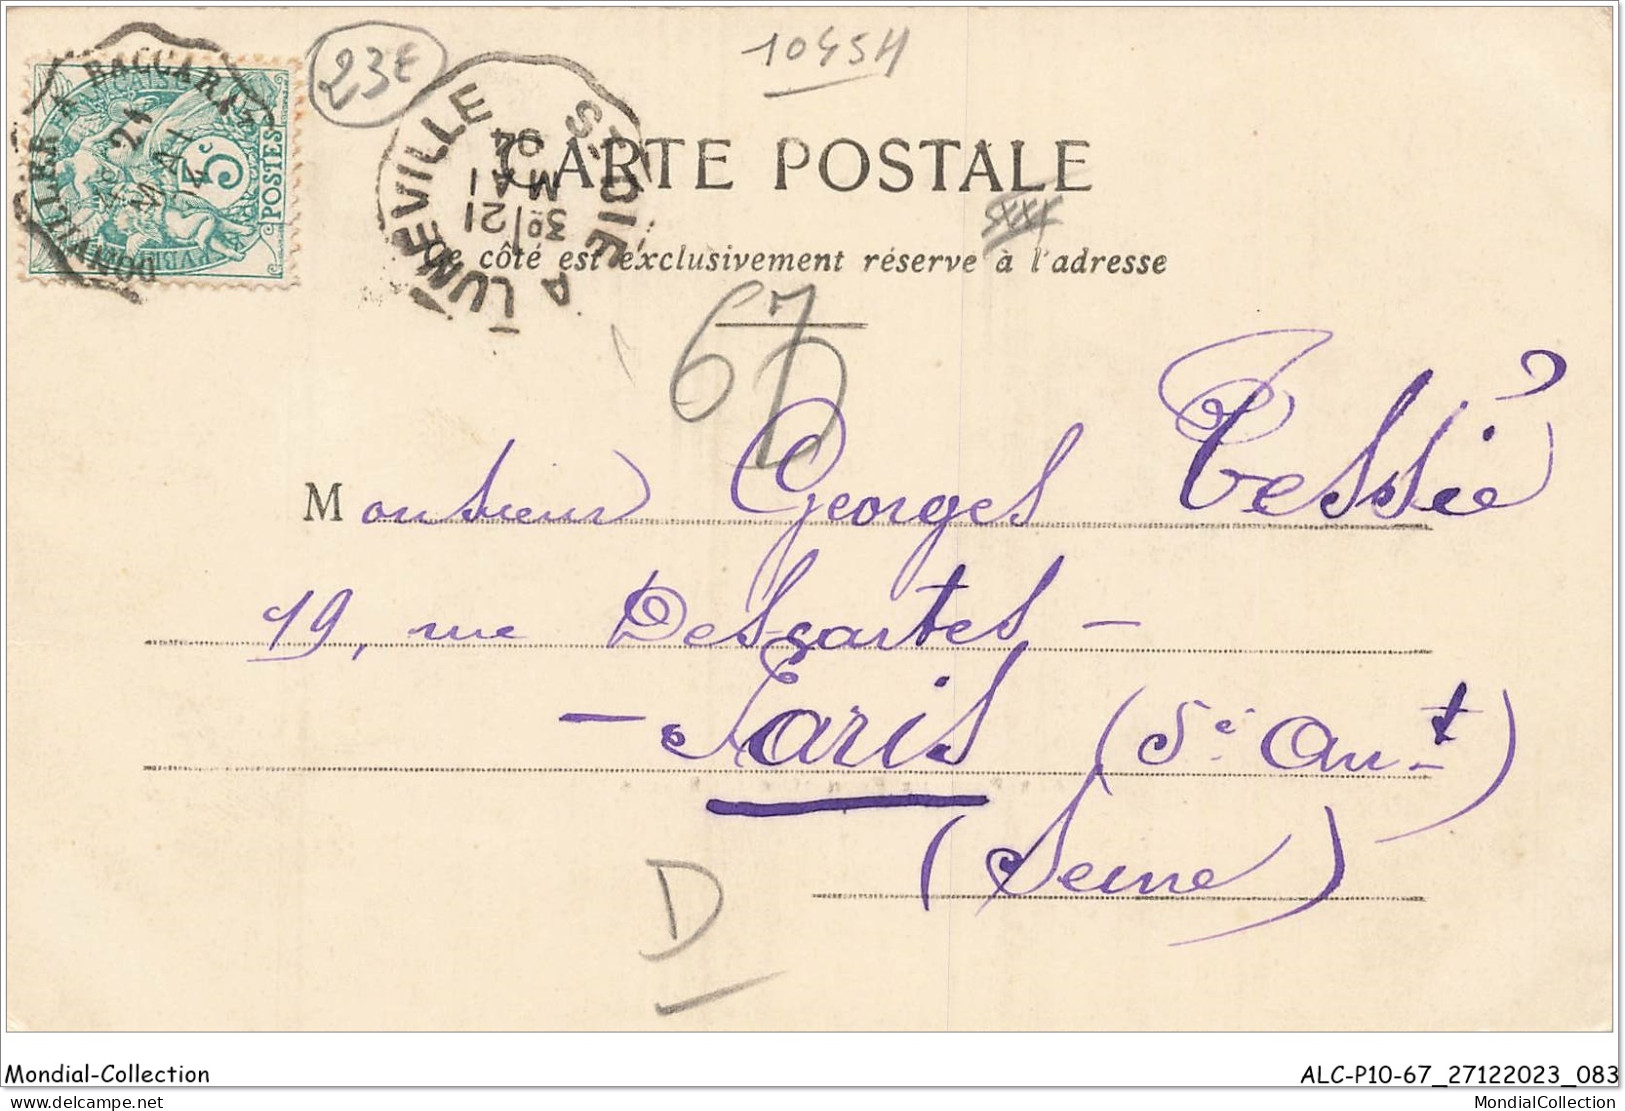 BACCARAT
21
MAI
5c
POSTES
23€
1045H
ST DIE A LUNEVILLE
3º/21
MAI
04
CARTE POSTALE
Ce côté est exclusivement réservé à l'adresse
67
D
Monsieur Georges Tessié
19, rue Descartes -
- Paris (5e Arr-t)
(Seine)
D
Mondial-Collection
ALC-P10-67_27122023_083
delcampe.net
MondialCollection